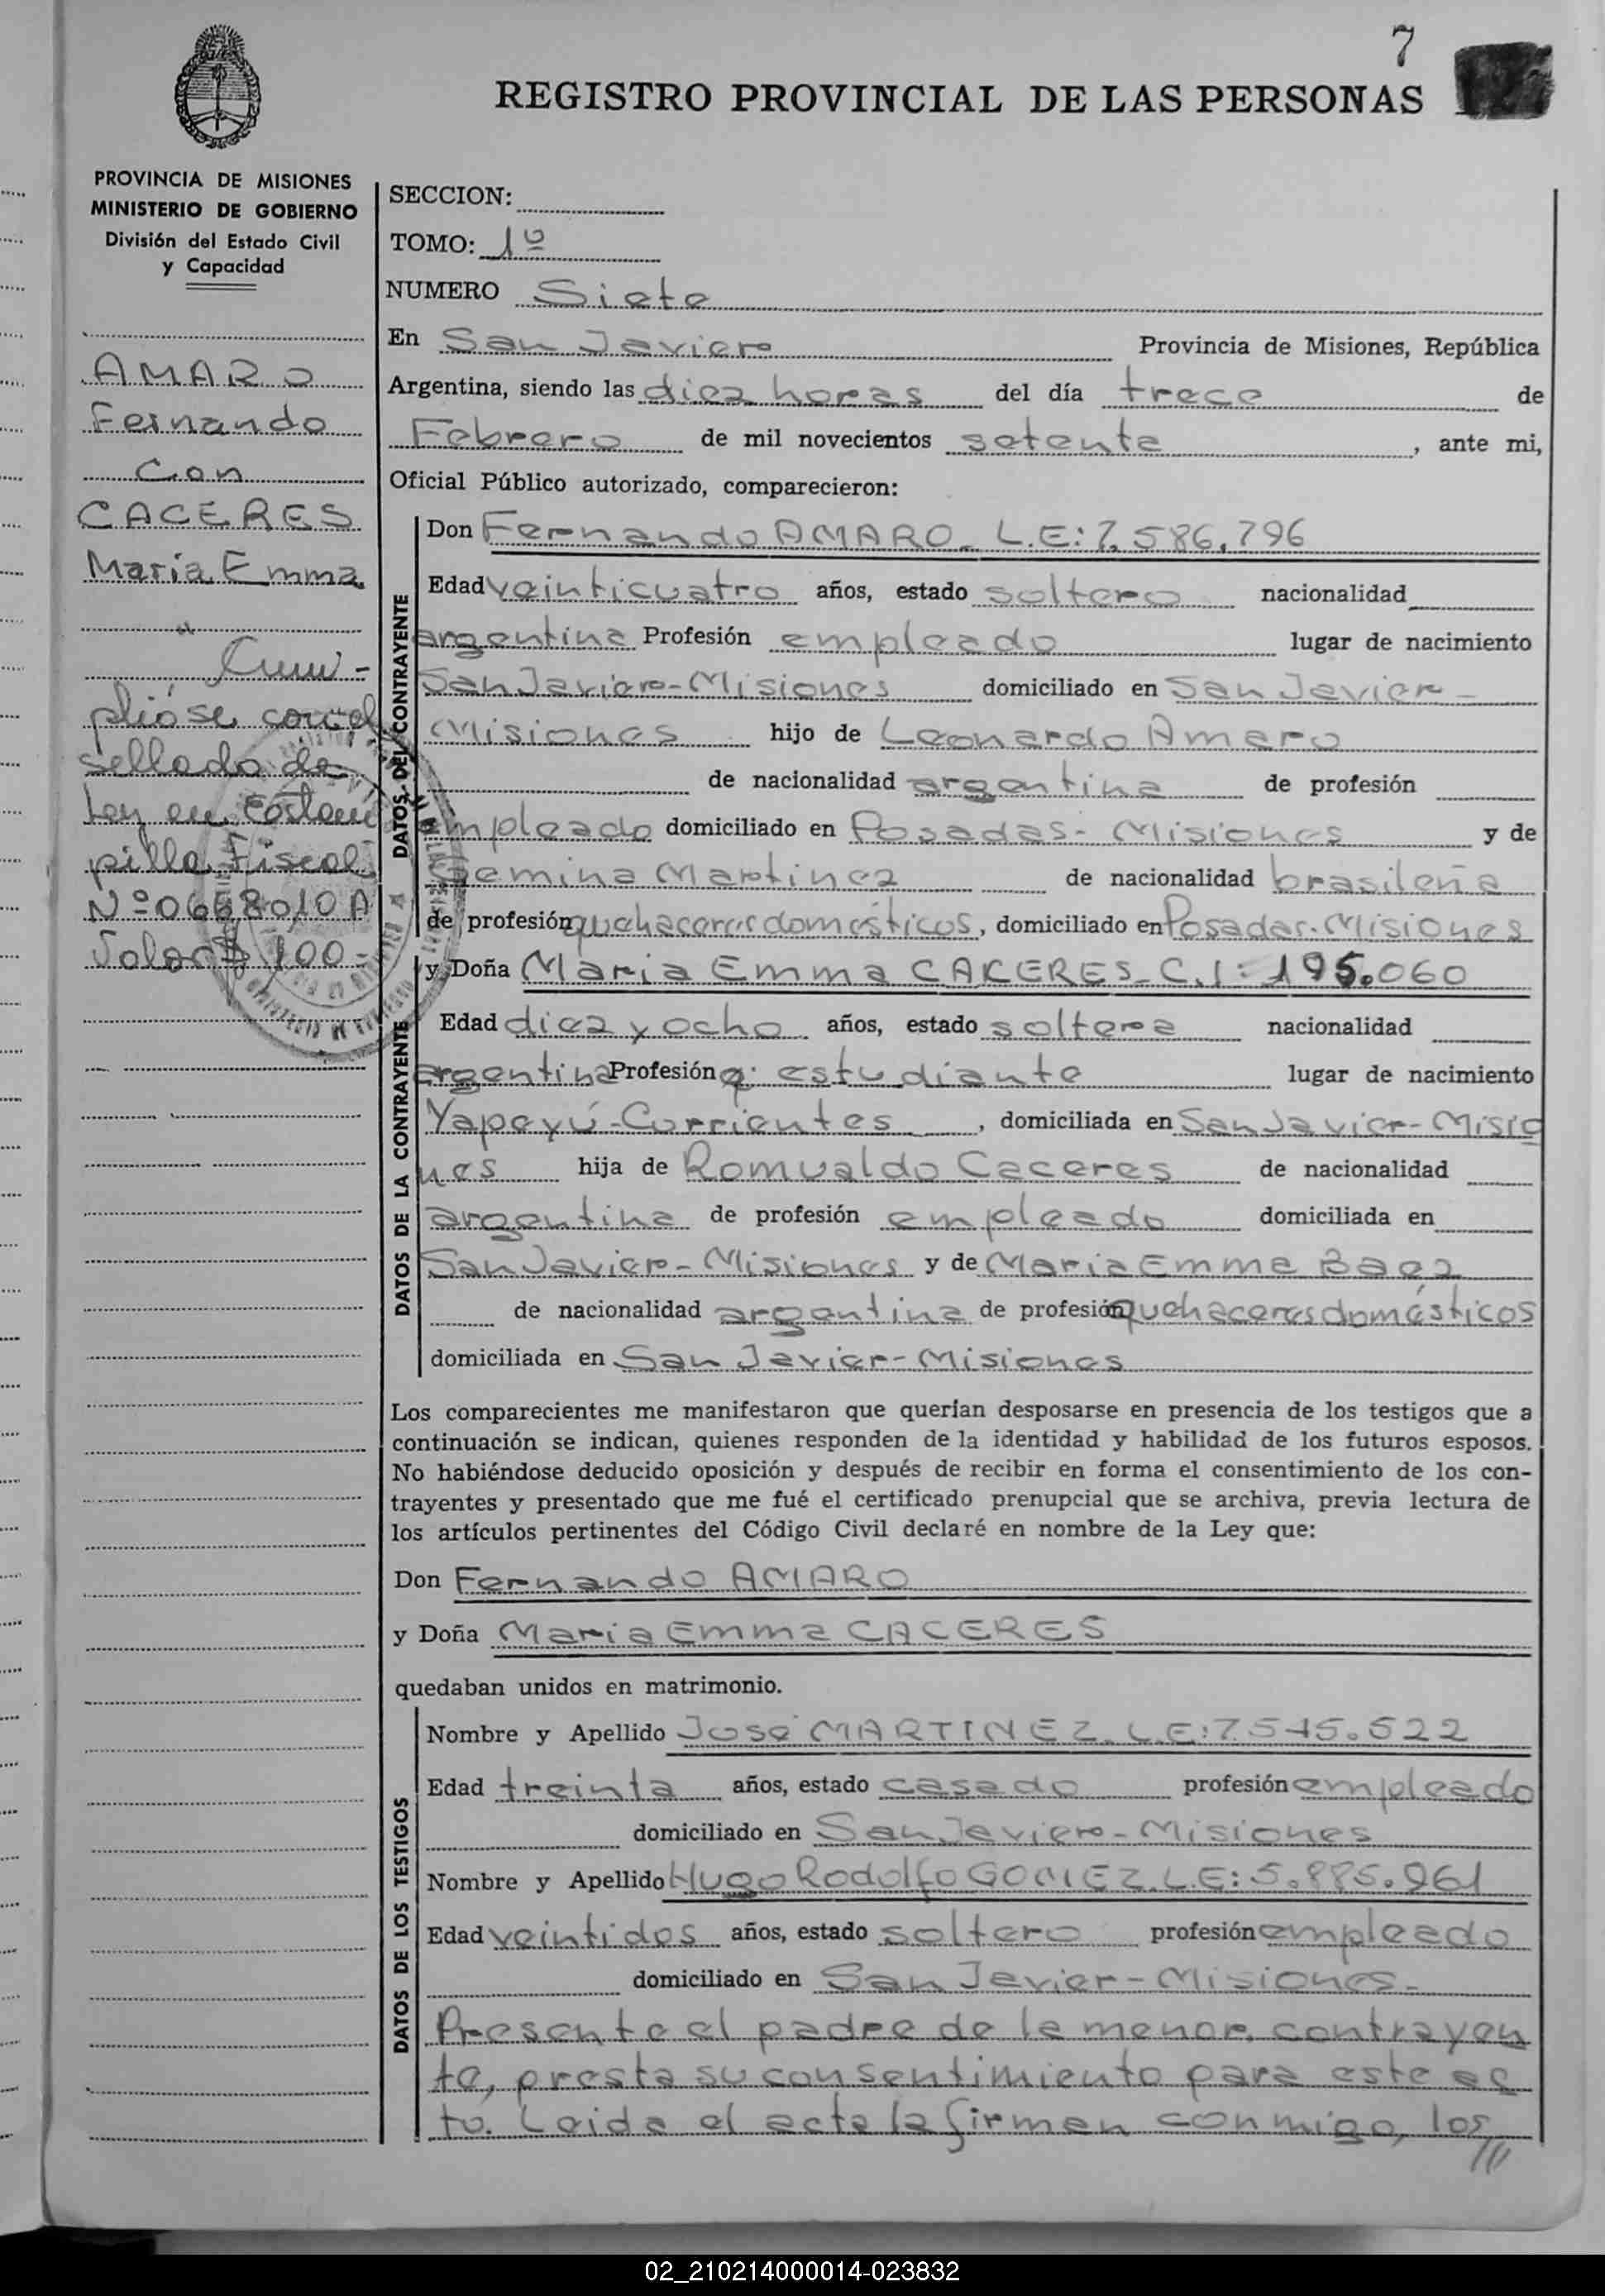 7
REGISTRO PROVINCIAL DE LAS PERSONAS
PROVINCIA DE MISIONES
MINISTERIO DE GOBIERNO
División del Estado Civil
y Capacidad
AMARO
Fernando
Con
CACERES
María Emma
Cum-
plióse con el
sellado de
Ley en Estam
pilla Fiscal
Nº 0668010 A
Valor $ 100-
SECCION:
TOMO: 1º
NUMERO Siete
En San Javier Provincia de Misiones, República
Argentina, siendo las diez horas del día trece de
Febrero de mil novecientos setenta, ante mi,
Oficial Público autorizado, comparecieron:
DATOS DEL CONTRAYENTE
Don Fernando AMARO_ L.E: 7.586.796
Edad veinticuatro años, estado soltero nacionalidad
argentina Profesión empleado lugar de nacimiento
San Javier-Misiones domiciliado en San Javier-
Misiones hijo de Leonardo Amaro
de nacionalidad argentina de profesión
empleado domiciliado en Posadas-Misiones y de
Gemina Martinez de nacionalidad brasileña
de profesión quehaceres domésticos, domiciliado en Posadas-Misiones
DATOS DE LA CONTRAYENTE
y Doña Maria Emma CACERES_ C.I: 195.060
Edad diez y ocho años, estado soltera nacionalidad
argentina Profesión q. estudiante lugar de nacimiento
Yapeyú-Corrientes, domiciliada en San Javier-Misio
nes hija de Romualdo Caceres de nacionalidad
argentina de profesión empleado domiciliada en
San Javier-Misiones y de Maria Emma Baez
de nacionalidad argentina de profesión quehaceres domésticos
domiciliada en San Javier-Misiones
Los comparecientes me manifestaron que querían desposarse en presencia de los testigos que a
continuación se indican, quienes responden de la identidad y habilidad de los futuros esposos.
No habiéndose deducido oposición y después de recibir en forma el consentimiento de los con-
trayentes y presentado que me fué el certificado prenupcial que se archiva, previa lectura de
los artículos pertinentes del Código Civil declaré en nombre de la Ley que:
Don Fernando AMARO
y Doña Maria Emma CACERES
quedaban unidos en matrimonio.
DATOS DE LOS TESTIGOS
Nombre y Apellido José MARTINEZ. L.E: 7.545.522
Edad treinta años, estado casado profesión empleado
domiciliado en San Javier-Misiones
Nombre y Apellido Hugo Rodolfo GOMEZ. L.E: 5.885.961
Edad veintidos años, estado soltero profesión empleado
domiciliado en San Javier-Misiones-
Presente el padre de la menor contrayen
te, presta su consentimiento para este ac
to. Leida el acta la firman conmigo, los
02_210214000014-023832